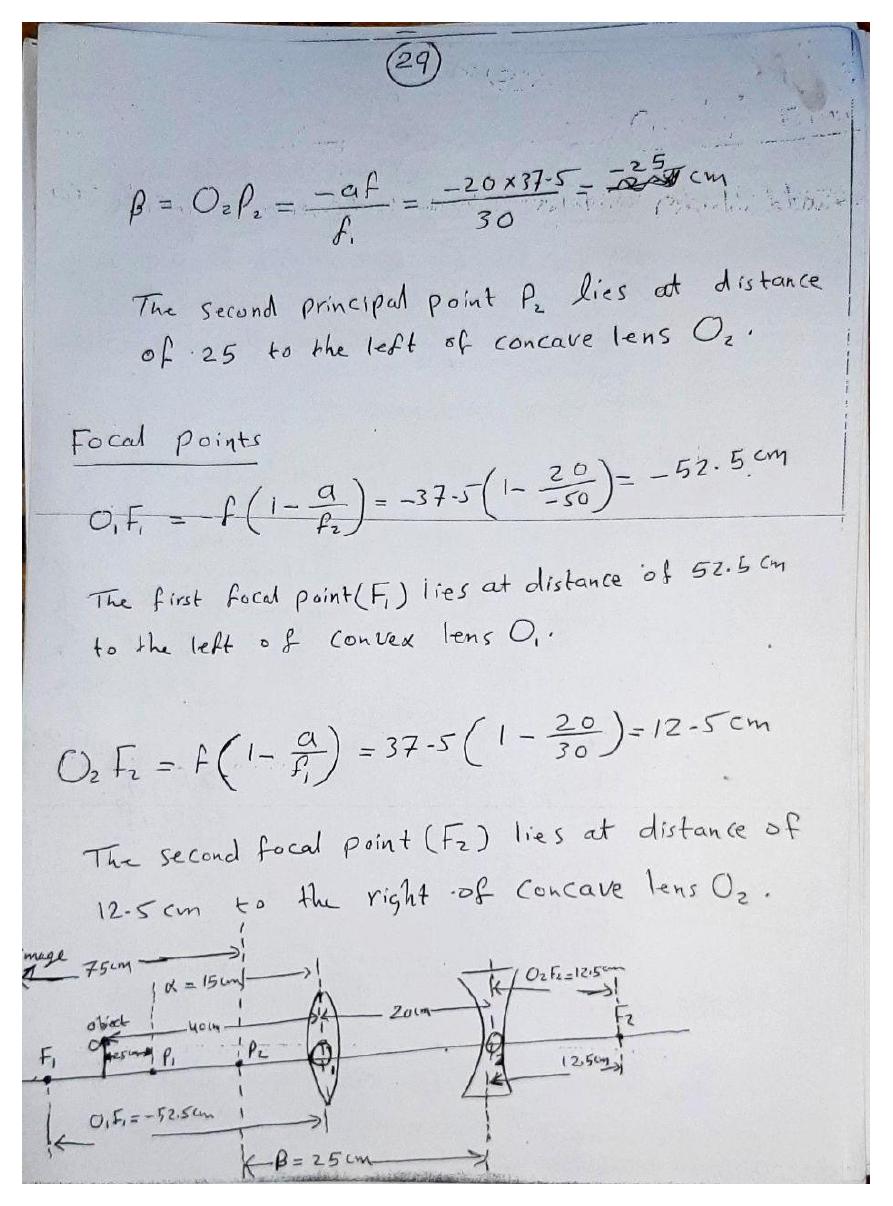 29
β = O₂P₂ = -af / f₁ = -20 x 37-5 / 30 = -25 cm
The second principal point P₂ lies at distance
of 25 to the left of concave lens O₂.
Focal points
O₁F₁ = -f(1 - a/f₂) = -37-5(1 - 20/-50) = -52.5 cm
The first focal point (F₁) lies at distance of 52.5 cm
to the left of convex lens O₁.
O₂F₂ = f(1 - a/f₁) = 37-5(1 - 20/30) = 12-5 cm
The second focal point (F₂) lies at distance of
12-5 cm to the right of concave lens O₂.
mage
75cm
α = 15cm
O₂F₂ = 12.5cm
object
40cm
20cm
F₂
F₁
P₁
P₂
12.5cm
O₁F₁ = -52.5cm
β = 25cm